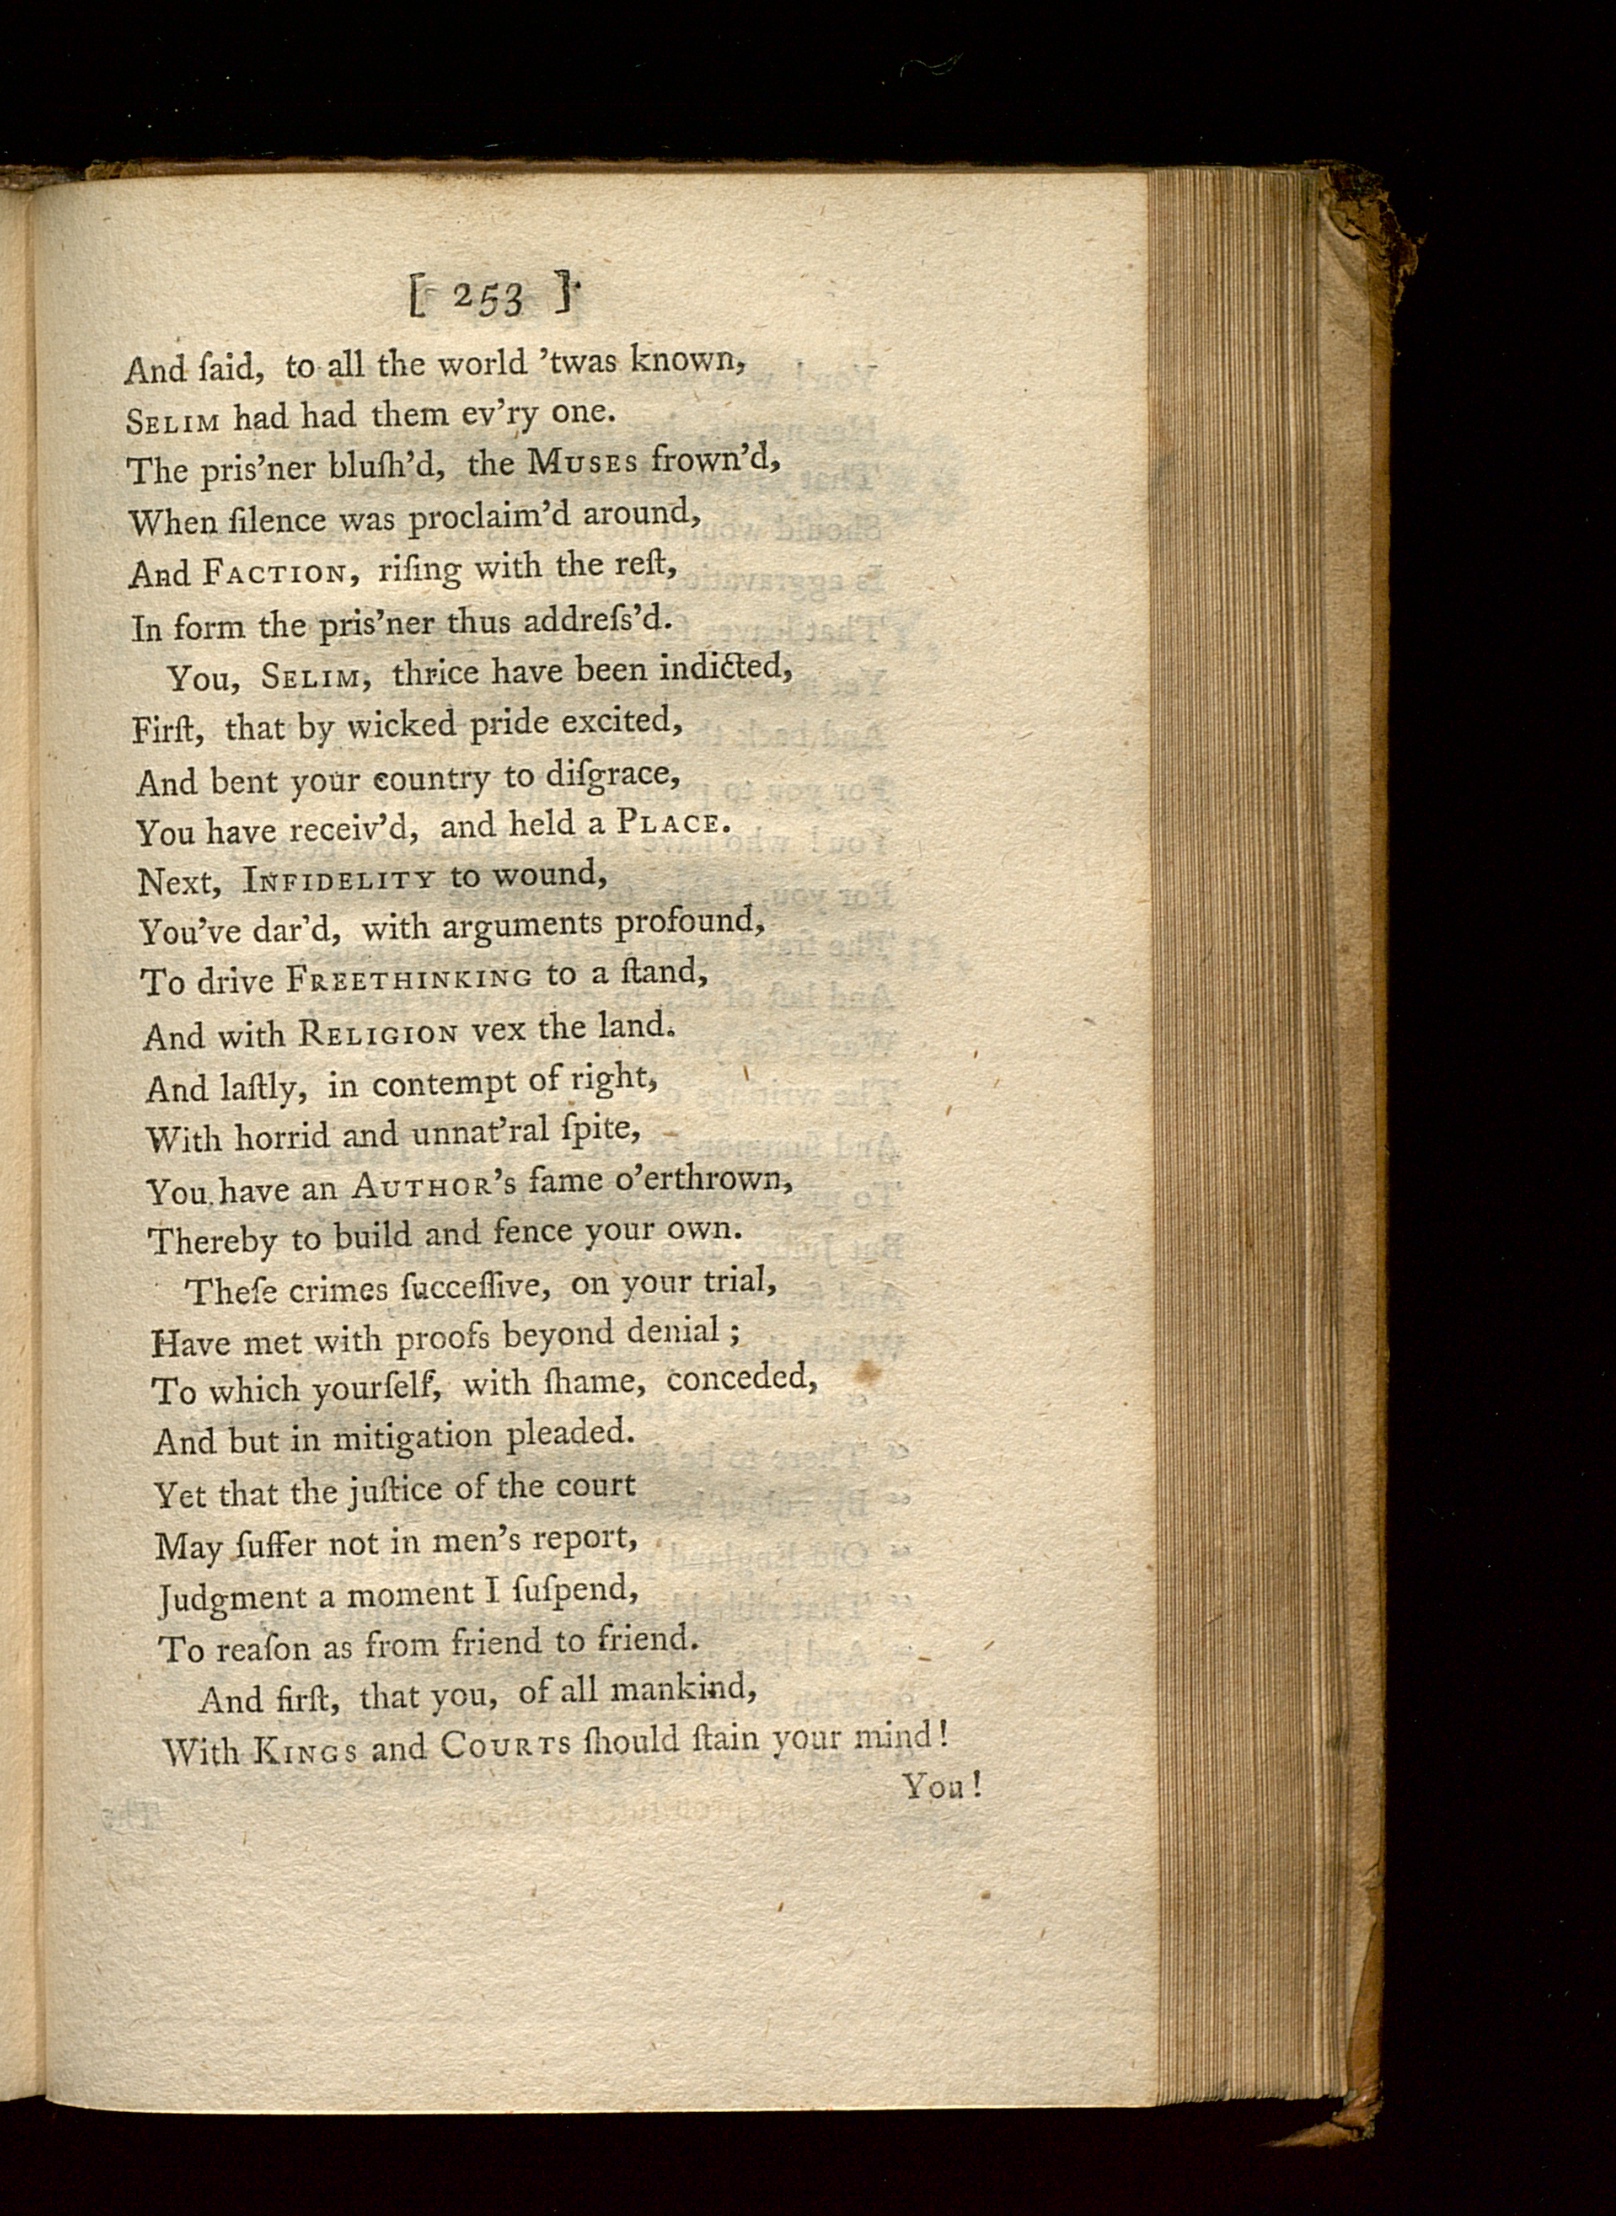 [ 253 ]
And ſaid, to all the world ’twas known,
SELIM had had them ev’ry one.
The pris’ner bluſh’d, the MUSES frown’d,
When ſilence was proclaim’d around,
And FACTION, riſing with the reſt,
In form the pris’ner thus addreſs’d.
You, SELIM, thrice have been indicted,
Firſt, that by wicked pride excited,
And bent your country to diſgrace,
You have receiv’d, and held a PLACE.
Next, INFIDELITY to wound,
You’ve dar’d, with arguments profound,
To drive FREETHINKING to a ſtand,
And with RELIGION vex the land.
And laſtly, in contempt of right,
With horrid and unnat’ral ſpite,
You have an AUTHOR’S fame o’erthrown,
Thereby to build and fence your own.
Theſe crimes ſucceſſive, on your trial,
Have met with proofs beyond denial ;
To which yourſelf, with ſhame, conceded,
And but in mitigation pleaded.
Yet that the juſtice of the court
May ſuffer not in men’s report,
Judgment a moment I ſuſpend,
To reaſon as from friend to friend.
And firſt, that you, of all mankind,
With KINGS and COURTS ſhould ſtain your mind!
You!